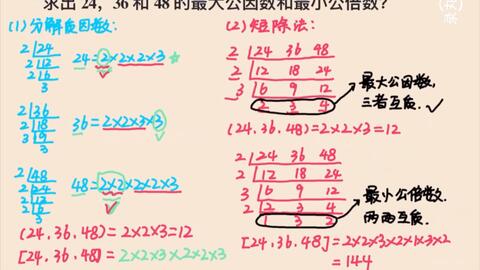 求出 24，36 和 48 的最大公因数和最小公倍数？
(1)分解质因数:
2 24
2 12
2 6
3
24=2×2×2×3
2 36
2 18
3 9
3
36=2×2×3×3
2 48
2 24
2 12
2 6
3
48=2×2×2×2×3
(24.36.48)=2×2×3=12
[24.36.48]=2×2×3×2×2×3
(2)短除法:
2 24 36 48
2 12 18 24
3 6 9 12
2 3 4
最大公因数,
三者互质.
(24.36.48)=2×2×3=12
2 24 36 48
2 12 18 24
3 6 9 12
2 2 3 4
1 3 2
最小公倍数.
两两互质.
[24.36.48]=2×2×3×2×1×3×2
=144